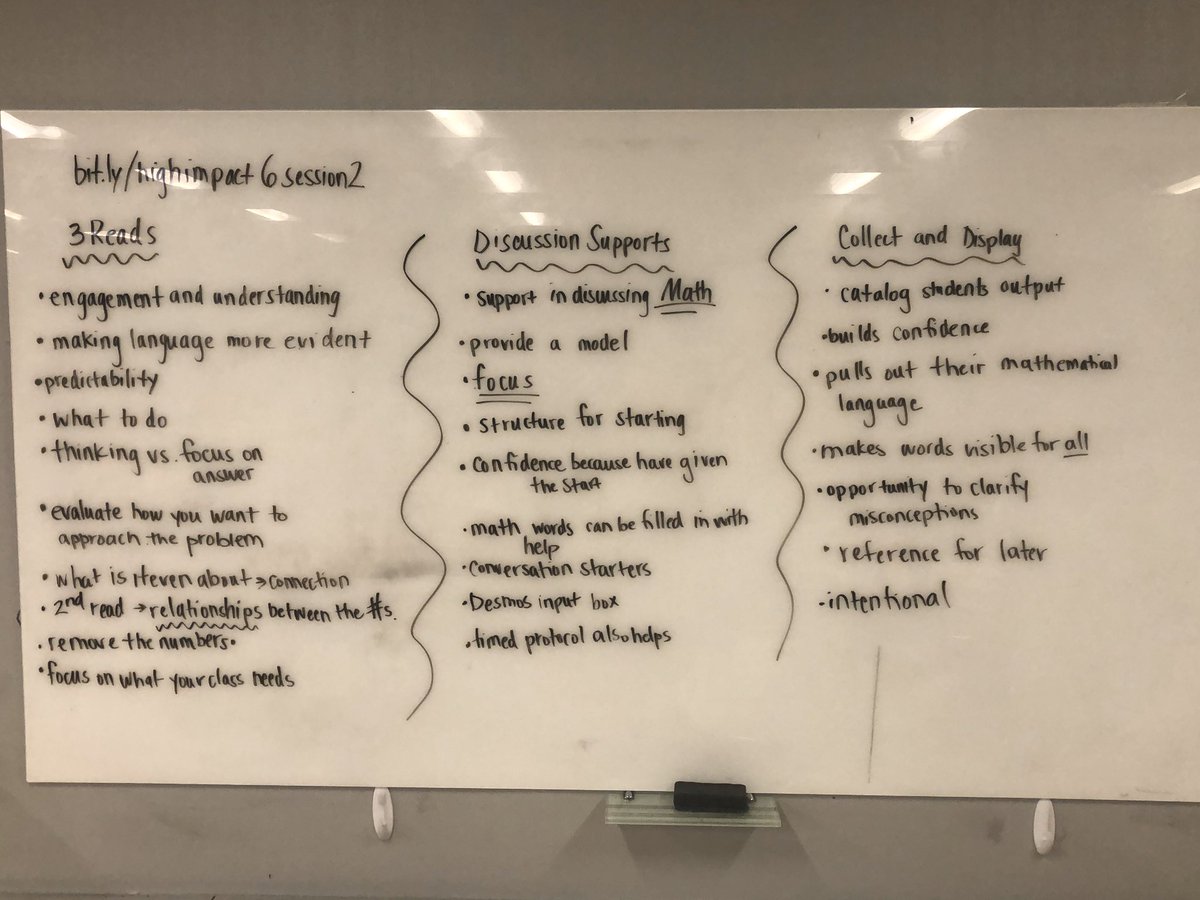 bit.ly/highimpact6session2
3 Reads
• engagement and understanding
• making language more evident
• predictability
• what to do
• thinking vs. focus on
answer
• evaluate how you want to
approach the problem
• what is it even about → connection
• 2nd read → relationships between the #s.
• remove the numbers.
• focus on what your class needs
Discussion Supports
• support in discussing Math
• provide a model
• focus
• structure for starting
• confidence because have given
the start
• math words can be filled in with
help
• Conversation starters
• Desmos input box
• timed protocol also helps
Collect and Display
• catalog students output
• builds confidence
• pulls out their mathematical
language
• makes words visible for all
• opportunity to clarify
misconceptions
• reference for later
• intentional